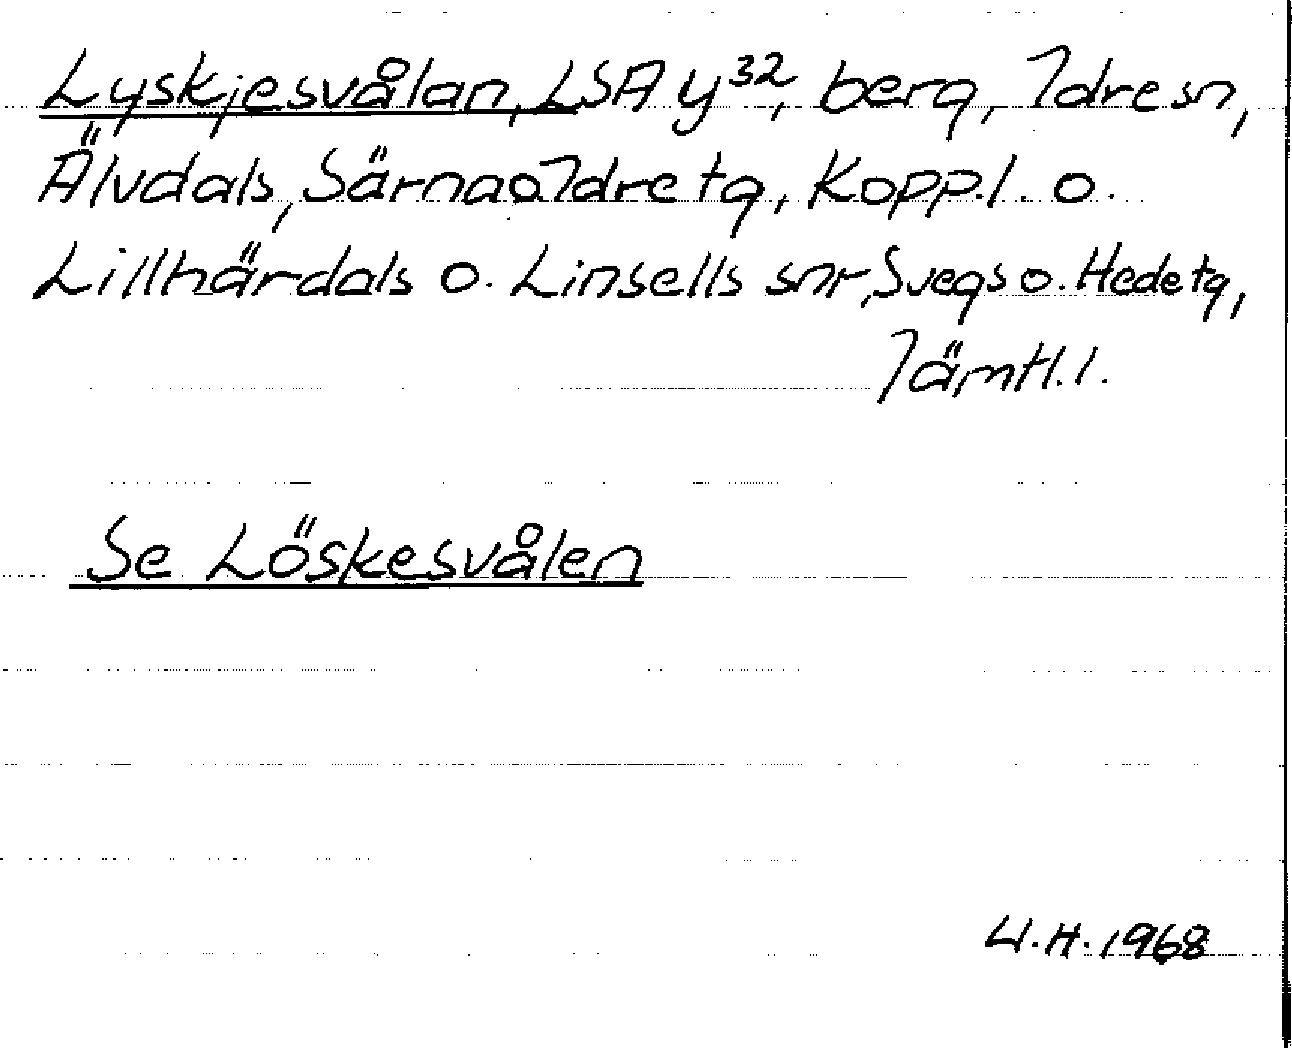 Lyskjesvålan, LSA y³², berg, Idre sn,
Älvdals, Särna o. Idre tg, Kopp.l. o.
Lillhärdals o. Linsells snr, Svegs o. Hede tg,
Jämtl.l.
Se Löskesvålen
U.H. 1968